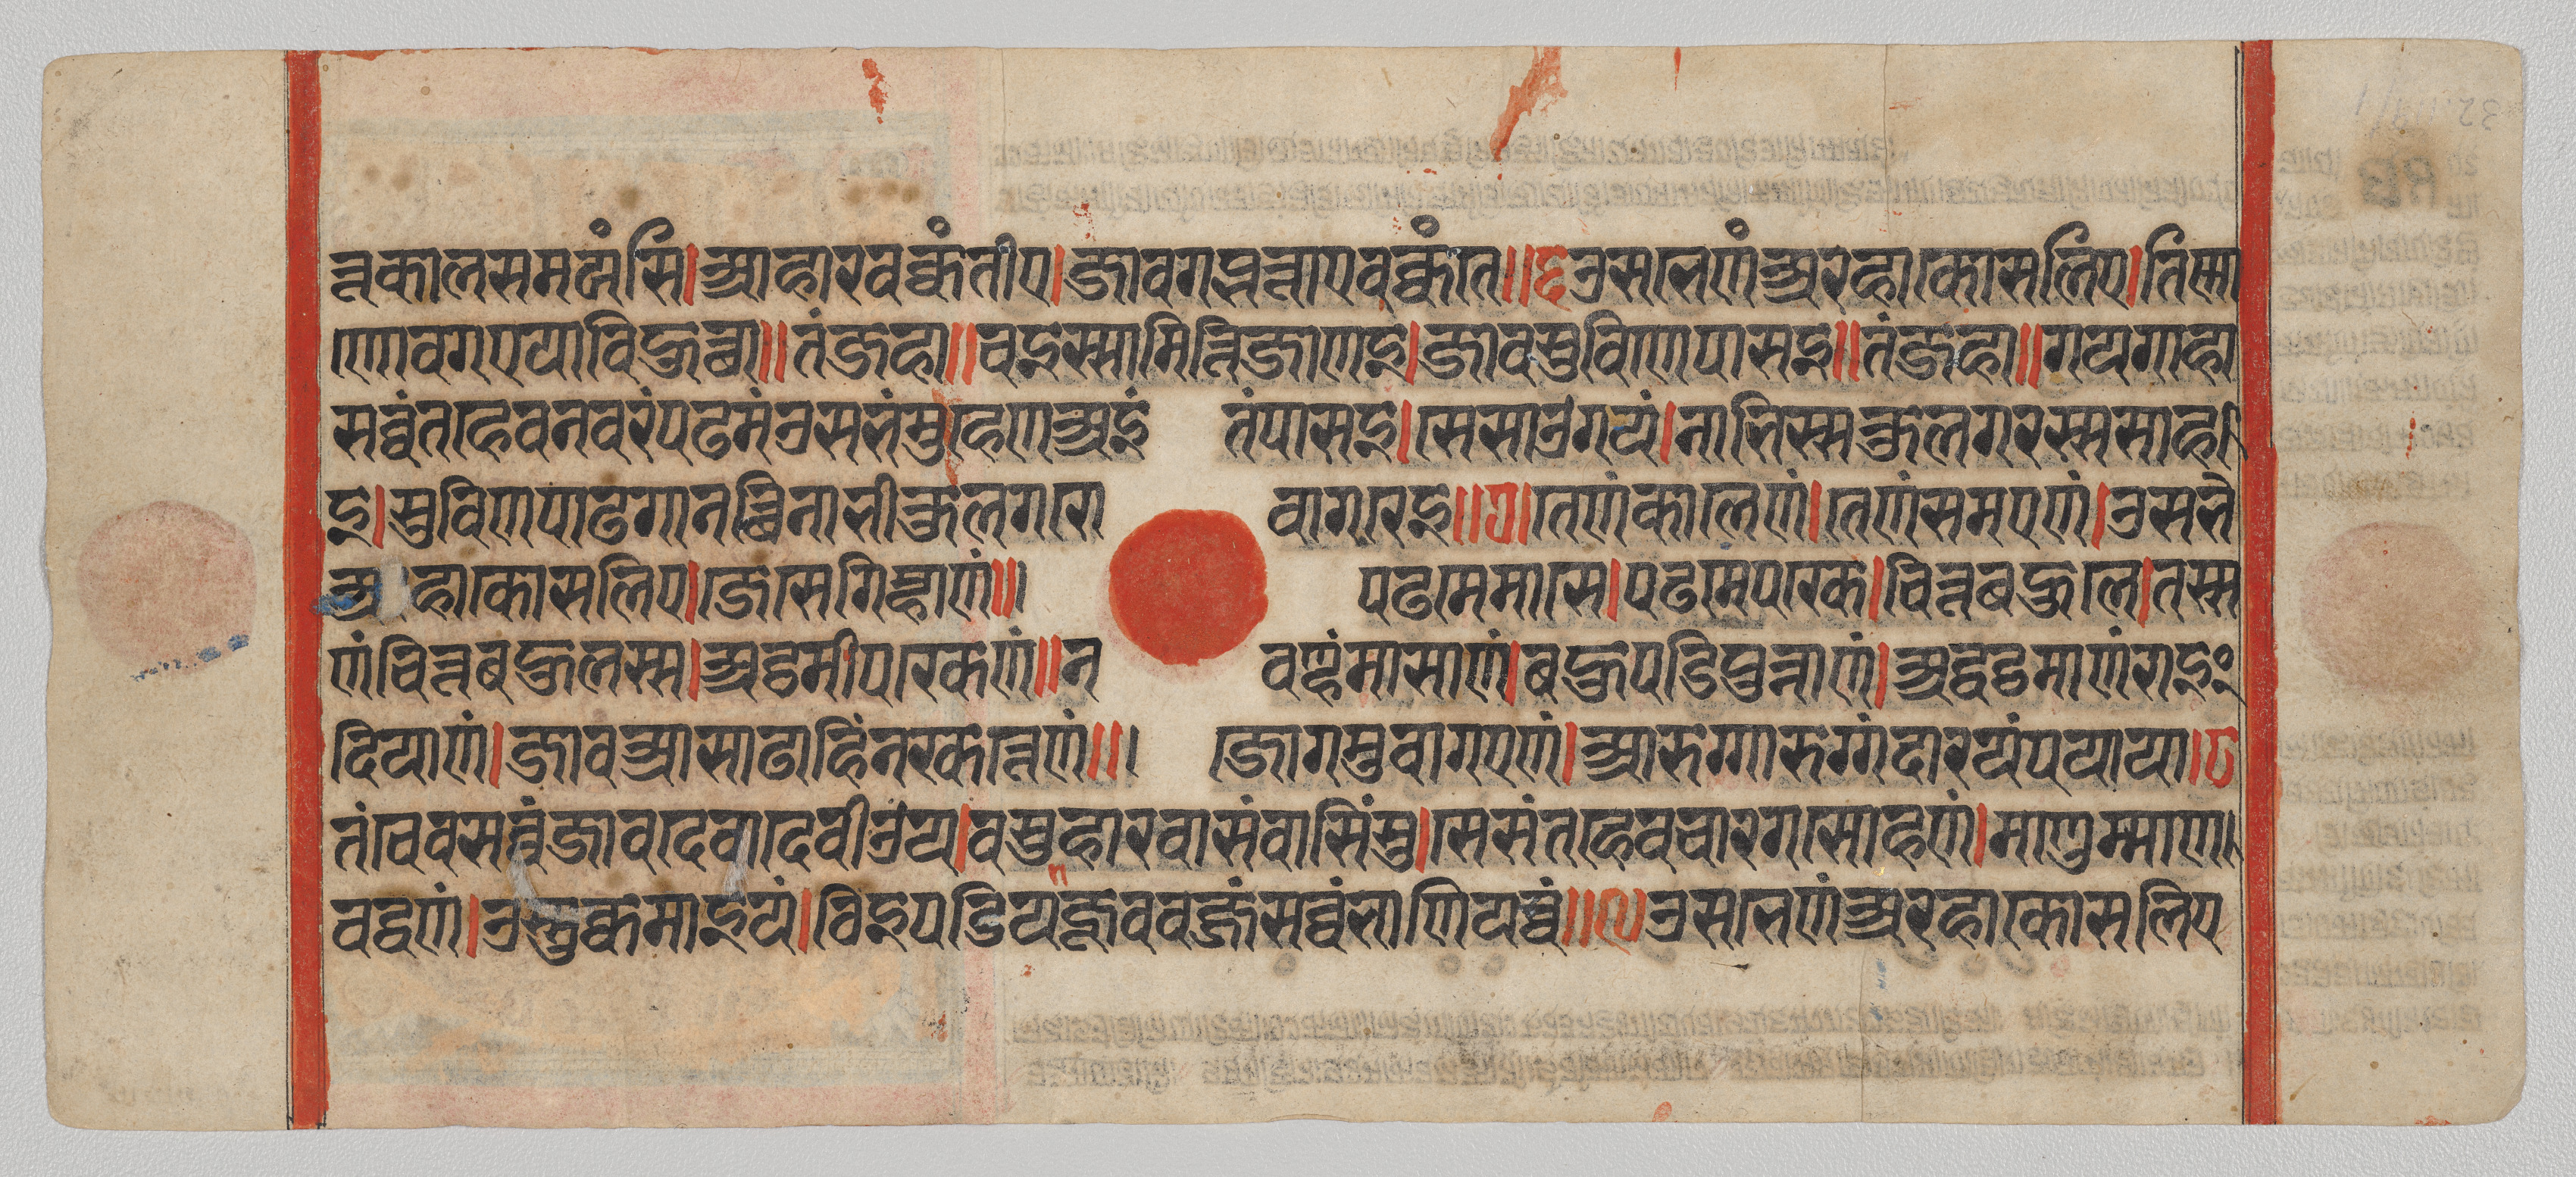 त्तकालसमयंसि।आहारवक्कंतीए।जावगब्भत्ताएवक्कंते॥६उसभेणंअरहाकोसलिए।तिन्ना
णोवगएयाविहुत्था॥तंजहा॥चइस्सामित्तिजाणइ।जावसुविणेपासइ॥तंजहा॥गयगाहा
सव्वंतहेवनवरंपढमंउसभंमुहेणअइं तंपासइ।सेसाउगयं।नाभिस्सकुलगरस्ससाहे
इ।सुविणपाढगानत्थिनाभीकुलगरो वागरेइ॥७।तेणंकालेणं।तेणंसमएणं।उसभे
अ हाकोसलिए।जेसेगिम्हाणं॥। पढमेमासे।पढमेपरके।चित्तबहुले।तस्स
णंचित्तबहुलस्स।अट्ठमीपरकेणं॥न वण्हंमासाणं।बहुपडिपुन्नाणं।अद्धट्ठमाणंराइं
दियाणं।जावआसाढाहिंनरकत्तेणं॥। जोगमुवागएणं।आरुग्गारुग्गंदारयंपयाया।८
तंचेवसव्वंजावदेवादेवीउय।वसुहारवासंवासिंसु।सेसंतहेवचारगसोहणं।माणुम्माण
वद्धणं।उस्सुक्कमाइयं।ठिइपडियजूववज्जंसव्वंभाणियव्वं॥९उसभेणंअरहाकोसलिए